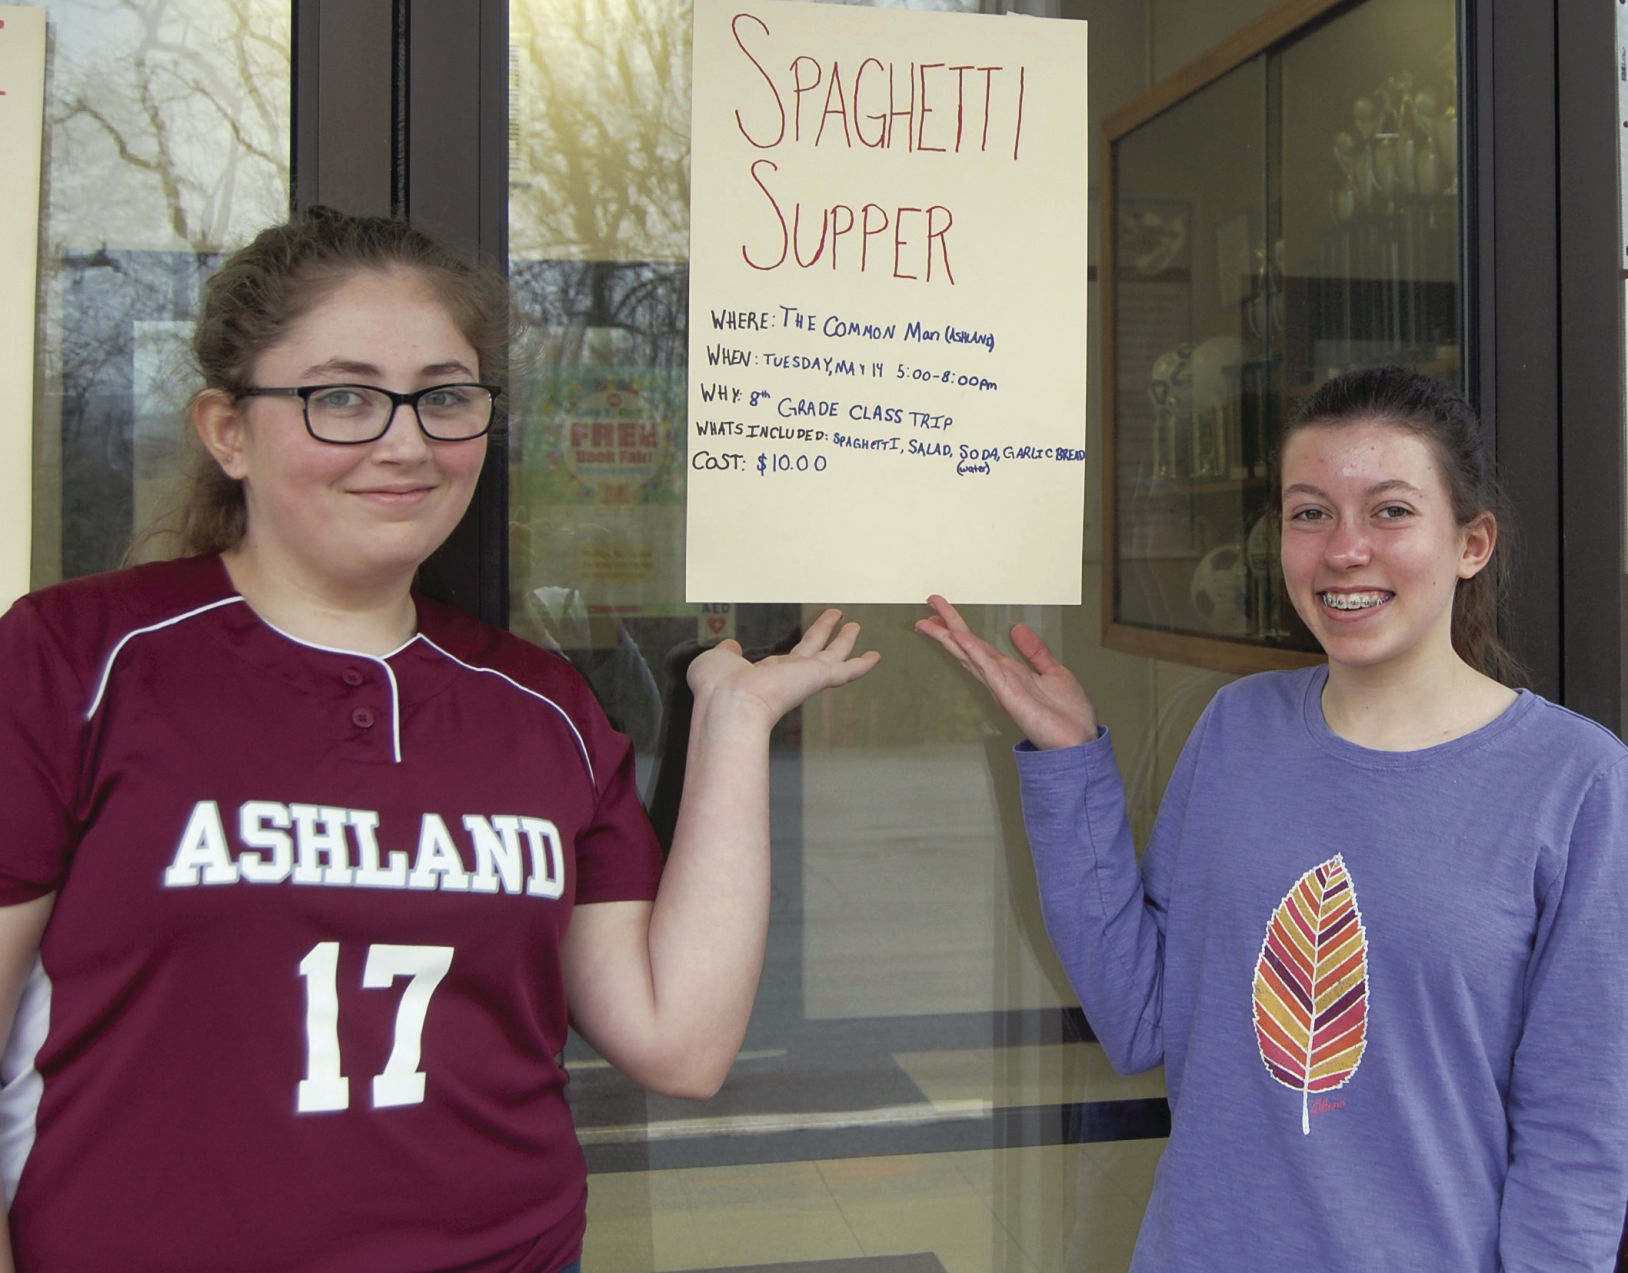 SPAGHETTI
SUPPER
WHERE: THE COMMON Man (ASHLAND)
WHEN: TUESDAY, MAY 14 5:00-8:00pm
WHY: 8th GRADE CLASS TRIP
WHATS INCLUDED: SPAGHETTI, SALAD, SODA, GARLIC BREAD
(water)
COST: $10.00
FREE
Book Fair!
AED
ASHLAND
17